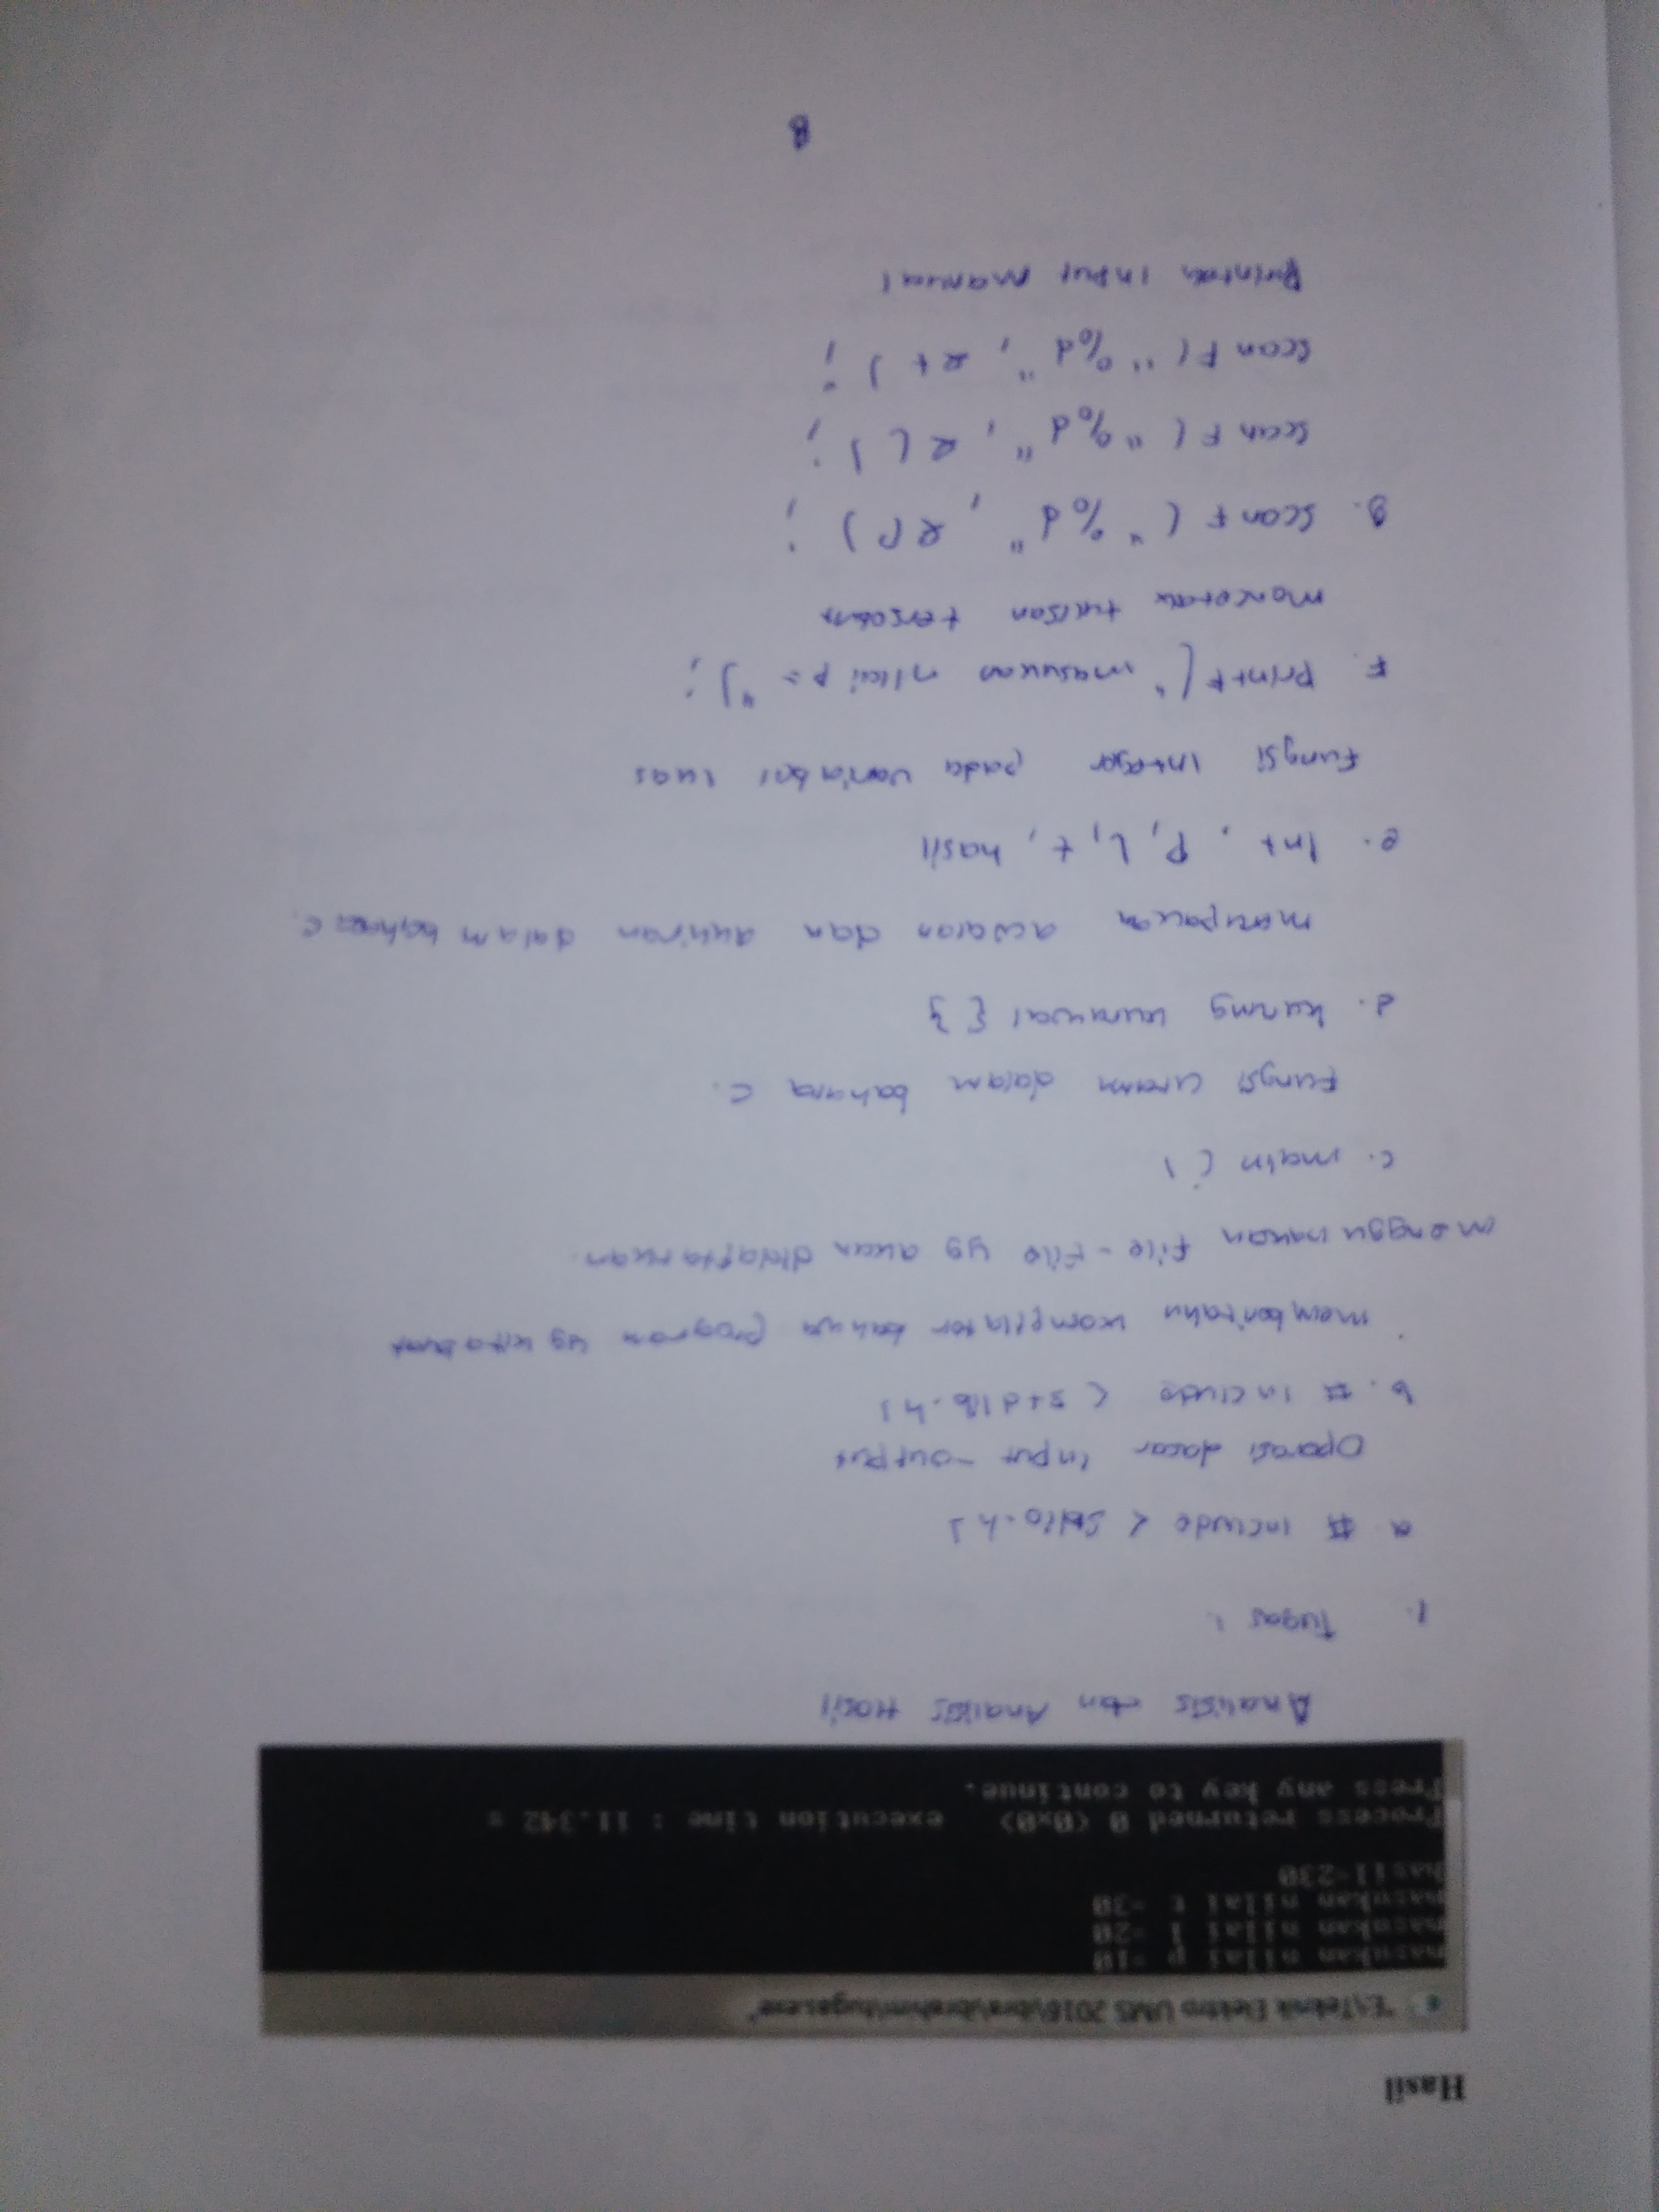 Hasil
"E:\Teknik Elektro UMS 2016\ibra\ibrahim\tugas.exe"
masukan nilai p =10
masukan nilai l =20
masukan nilai t =30
hasil=230
Process returned 0 (0x0) execution time : 11.342 s
Press any key to continue.
Analisis dan Analisis Hasil
1. Tugas 1
a. # include < Stdio.h >
Operasi dasar input - output
b. # include < stdlib.h >
memberitahu kompilator bahwa program yg kita buat
menggunakan file - file yg akan didaftarkan.
c. main ( )
Fungsi utama dalam bahasa C.
d. kurung kurawal { }
merupakan awalan dan akhiran dalam bahasa C.
e. Int , P, L, t, hasil
Fungsi integer pada variabel luas
F. PrintF ( " masukan nilai p = " ) ;
mencetak tulisan tersebut
g. scan F ( " %d " , &p ) ;
scan F ( " %d " , &l ) ;
scan F ( " %d " , &t ) ;
Perintah input manual
8